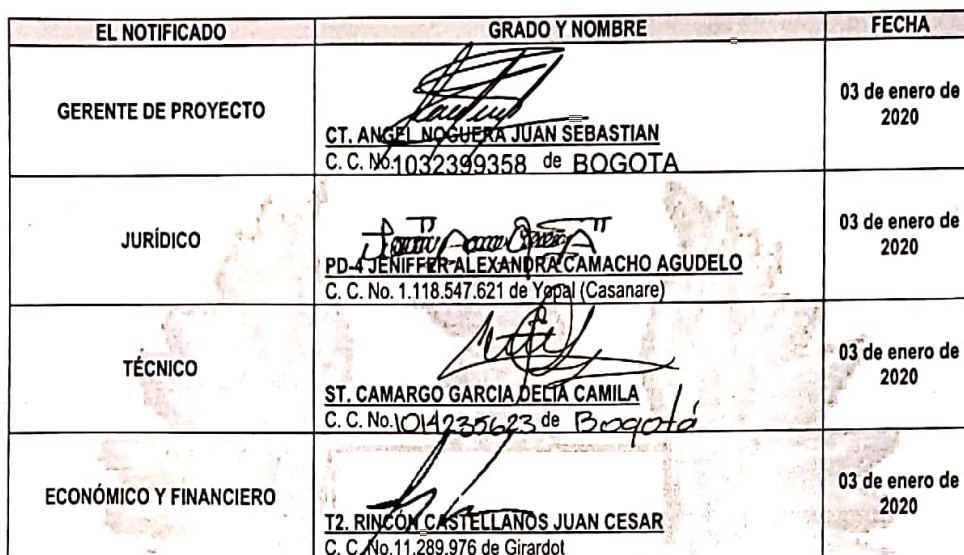 EL NOTIFICADO GRADO Y NOMBRE FECHA
GERENTE DE PROYECTO
CT. ANGEL NOGUERA JUAN SEBASTIAN
C. C. No. 1032399358 de BOGOTA
03 de enero de
2020
JURÍDICO
PD-4 JENIFFER ALEXANDRA CAMACHO AGUDELO
C. C. No. 1.118.547.621 de Yopal (Casanare)
03 de enero de
2020
TÉCNICO
ST. CAMARGO GARCIA DELIA CAMILA
C. C. No. 1014235623 de Bogotá
03 de enero de
2020
ECONÓMICO Y FINANCIERO
T2. RINCÓN CASTELLANOS JUAN CESAR
C. C. No. 11.289.976 de Girardot
03 de enero de
2020